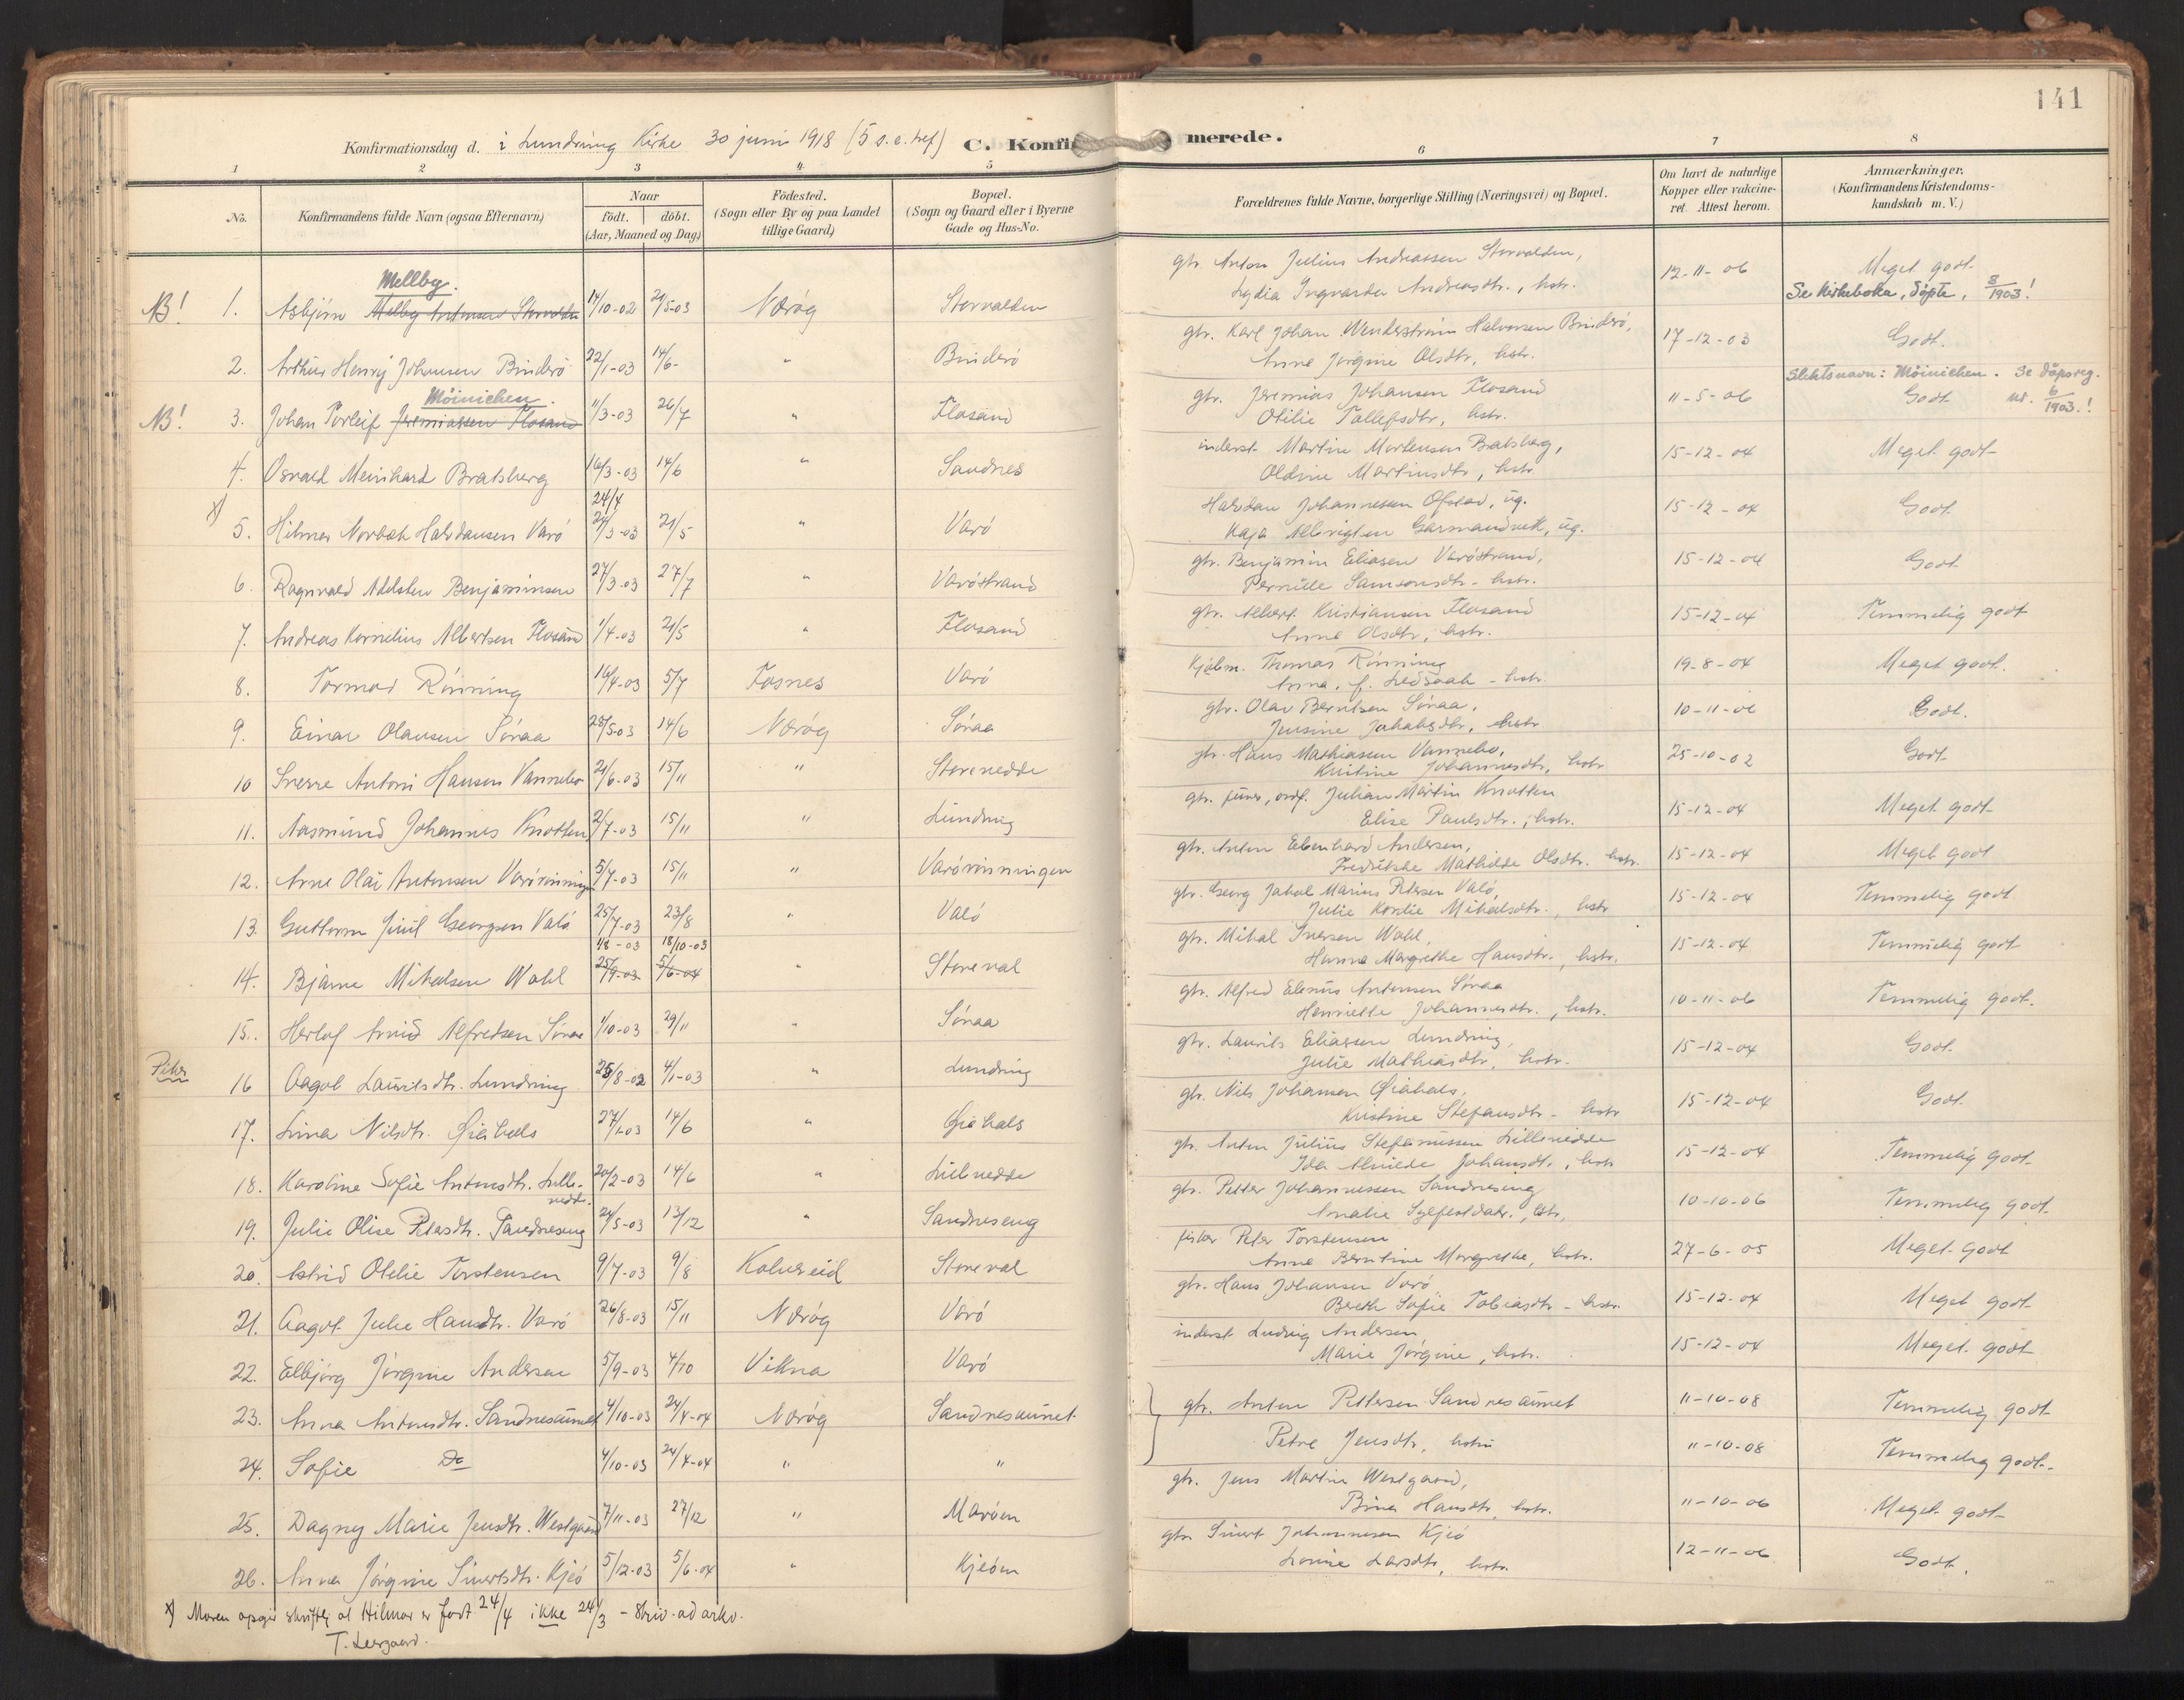 141
Konfirmationsdag d. i Lundring Kirke 30 juni 1918 (5 s. e. tref) C. Konfirmerede.
1 2 3 4 5 6 7 8
No. Konfirmandens fulde Navn (ogsaa Efternavn) Naar født. døbt. (Aar, Maaned og Dag) Födested. (Sogn eller By og paa Landet tillige Gaard) Bopæl. (Sogn og Gaard eller i Byerne Gade og Hus-No. Forældrenes fulde Navne, borgerlige Stilling (Næringsvei) og Bopæl. Om havt de naturlige Kopper eller vakcineret. Attest herom. Anmærkninger. (Konfirmandens Kristendomskundskab m. V.)
Mellby.
NB! 1. Asbjørn Melby Antonsen Storvalden 14/10-02 21/5-03 Nærøy Storvalden gbr. Anton Julius Andreassen Storvalden, Lydia Ingvarda Andreasdtr., hstr. 12-11-06 Meget godt
Se Kirkeboka, döpte, 8/1903!
2. Arthur Henry Johansen Binderö 22/1-03 14/6- " Binderö gbr. Karl Johan Wenderstrøm Halvorsen Binderö, Anne Jörgine Olsdtr, hstr. 17-12-03 Godt.
Möinichen.
NB! 3. Johan Torleif Jeremiassen Flosand 11/3-03 26/7 " Flosand gbr. Jeremias Johansen Flosand Otilie Tollefsdtr, hstr. 11-5-06 Godt
Slektsnavn: Möinichen. Se döpsreg. nr. 6/1903.!
4. Osvald Meinhard Bratsberg 16/3-03 14/6 " Sandnes inderst Martin Mortensen Bratsberg, Oldine Martinsdtr, hstr 15-12-04 Meget godt
24/4
x) 5. Hilmar Norbak Halvdansen Varö 24/3-03 21/5 " Varö Halvdan Johannessen Ofstad, ug. Kaja Albrigtsen Garmandvik, ug. 15-12-04 Godt.
6. Ragnvald Adelsten Benjaminsen 27/3-03 27/7 " Varöstrand gbr. Benjamin Eliasen Varöstrand, Pernille Samsonsdtr - hstr. 15-12-04 Godt
7. Andreas Kornelius Albertsen Flosand 1/4-03 21/5 " Flosand gbr. Albert Kristiansen Flosand Anne Olsdtr, hstr. 15-12-04 Temmelig godt
8. Tormod Rönning 16/4-03 5/7 Fosnes Varö Kjøbm. Thomas Rönning Anna, f. Ledsaak - hstr. 19-8-04 Meget godt.
9. Einar Olausen Söraa 28/5-03 14/6 Nærøy Söraa gbr. Olav Berntsen Söraa, Jensine Jakobsdtr, hstr 10-11-06 Godt.
10 Sverre Antoni Hansen Vannebo 21/6-03 15/11 " Storenedde gbr. Hans Mathiasen Vannebo, Kristine Johannesdtr, hstr 25-10-02 Godt
11. Aasmund Johannes Knotten 2/7-03 15/11 " Lundring gbr. fhv., ordf. Julian Martin Knotten Elise Paulsdtr., hstr. 15-12-04 Meget godt
12. Arne Olai Antonsen Varörönningen 5/7-03 15/11 " Varörönningen gbr. Anton Edenhard Andersen, Fredrikke Mathilde Olsdtr. hstr. 15-12-04 Meget godt
13. Guttorm Juul Georgsen Valö 25/7-03 23/8 " Valö gbr. Georg Jakob Marius Petersen Valö, Julie Kordie Mikalsdtr., hstr 15-12-04 Temmelig godt
4/8-03 18/10-03
14. Bjarne Mikalsen Wahl 25/9-03 5/6-04 " Storeval gbr. Mikal Iversen Wahl, Hanna Margrethe Hansdtr., hstr. 15-12-04 Temmelig godt
15. Herlof Arvid Alfredsen Söraa 1/10-03 29/11 " Söraa gbr. Alfred Elenus Antonsen Söraa Henriette Johannesdtr., hstr. 10-11-06 Temmelig godt.
Piker
16 Aagot Lauritsdtr. Lundring 25/8-02 4/1-03 " Lundring gbr. Laurits Eliassen Lundring, Julie Mathiasdtr, hstr. 15-12-04 Godt.
17. Lina Nilsdtr. Giæhals 27/1-03 14/6 " Giæhals gbr. Nils Johansen Giæhals, Kristine Stefansdtr - hstr 15-12-04 Godt
18. Karoline Sofie Antonsdtr. Lillenedde. 20/2-03 14/6 " Lillenedde gbr. Anton Julius Stefanussen Lillenedde Ida Almilde Johansdtr., hstr 15-12-04 Temmelig godt
19. Julie Olise Petersdtr. Sandneseng 24/5-03 13/12 " Sandneseng gbr. Petter Johannessen Sandneseng Amalie Sylfestdatr., hstr, 10-10-06 Temmelig godt
20. Astrid Otelie Torstensen 9/7-03 9/8 Kolvereid Storeval fisker Peter Torstensen Anne Berntine Margrethe, hstr. 27-6-05 Meget godt
21. Aagot Julie Hansdtr. Varö 26/8-03 15/11 Nærøy Varö gbr. Hans Johansen Varö Bereth Sofie Tobiasdtr - hstr. 15-12-04 Meget godt
22. Elbjörg Jörgine Andersen 5/9-03 4/10 Vikna Varö inderst Ludvig Andersen, Marie Jörgine, hstr. 15-12-04 Meget godt
23. Anna Antonsdtr. Sandnesaunet 4/10-03 24/4-04 Nærøy Sandnesaunet gbr. Anton Pettersen Sandnesaunet 11-10-08 Temmelig godt
24. Sofie Do 4/10-03 24/4-04 " " Petre Jensdtr, hstru 11-10-08 Temmelig godt.
25. Dagny Marie Jensdtr. Westgaard 7/11-03 27/12 " Maröen gbr. Jens Martin Westgaard, Bina Hansdtr, hstr. 11-10-06 Meget godt
26. Anna Jörgine Sivertsdtr. Kjeö 5/12-03 5/6-04 " Kjeöen gbr. Sivert Johannesen Kjeö Lovise Larsdtr, hstr. 12-11-06 Godt.
x) Moren opgir skriftlig at Hilmar er født 24/4 ikke 24/3 - Skriv. ad arkv.
T. Leergaard.